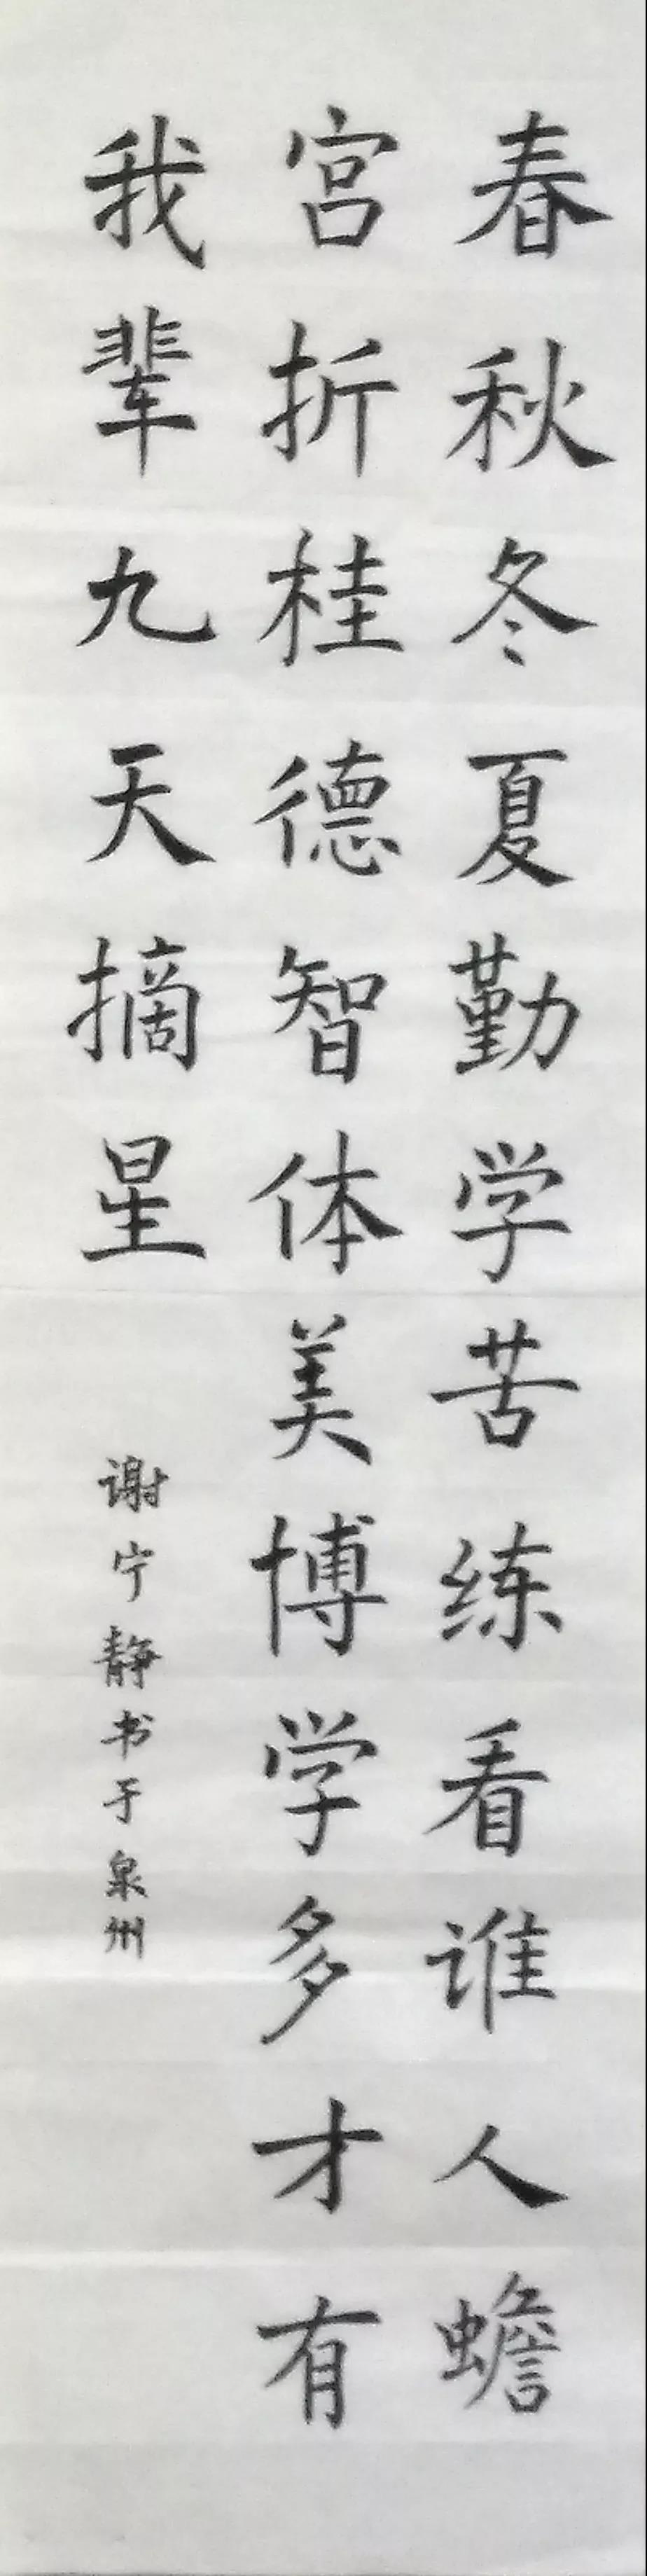 春秋冬夏勤学苦练看谁人蟾
宫折桂德智体美博学多才有
我辈九天摘星
谢宁静书于泉州